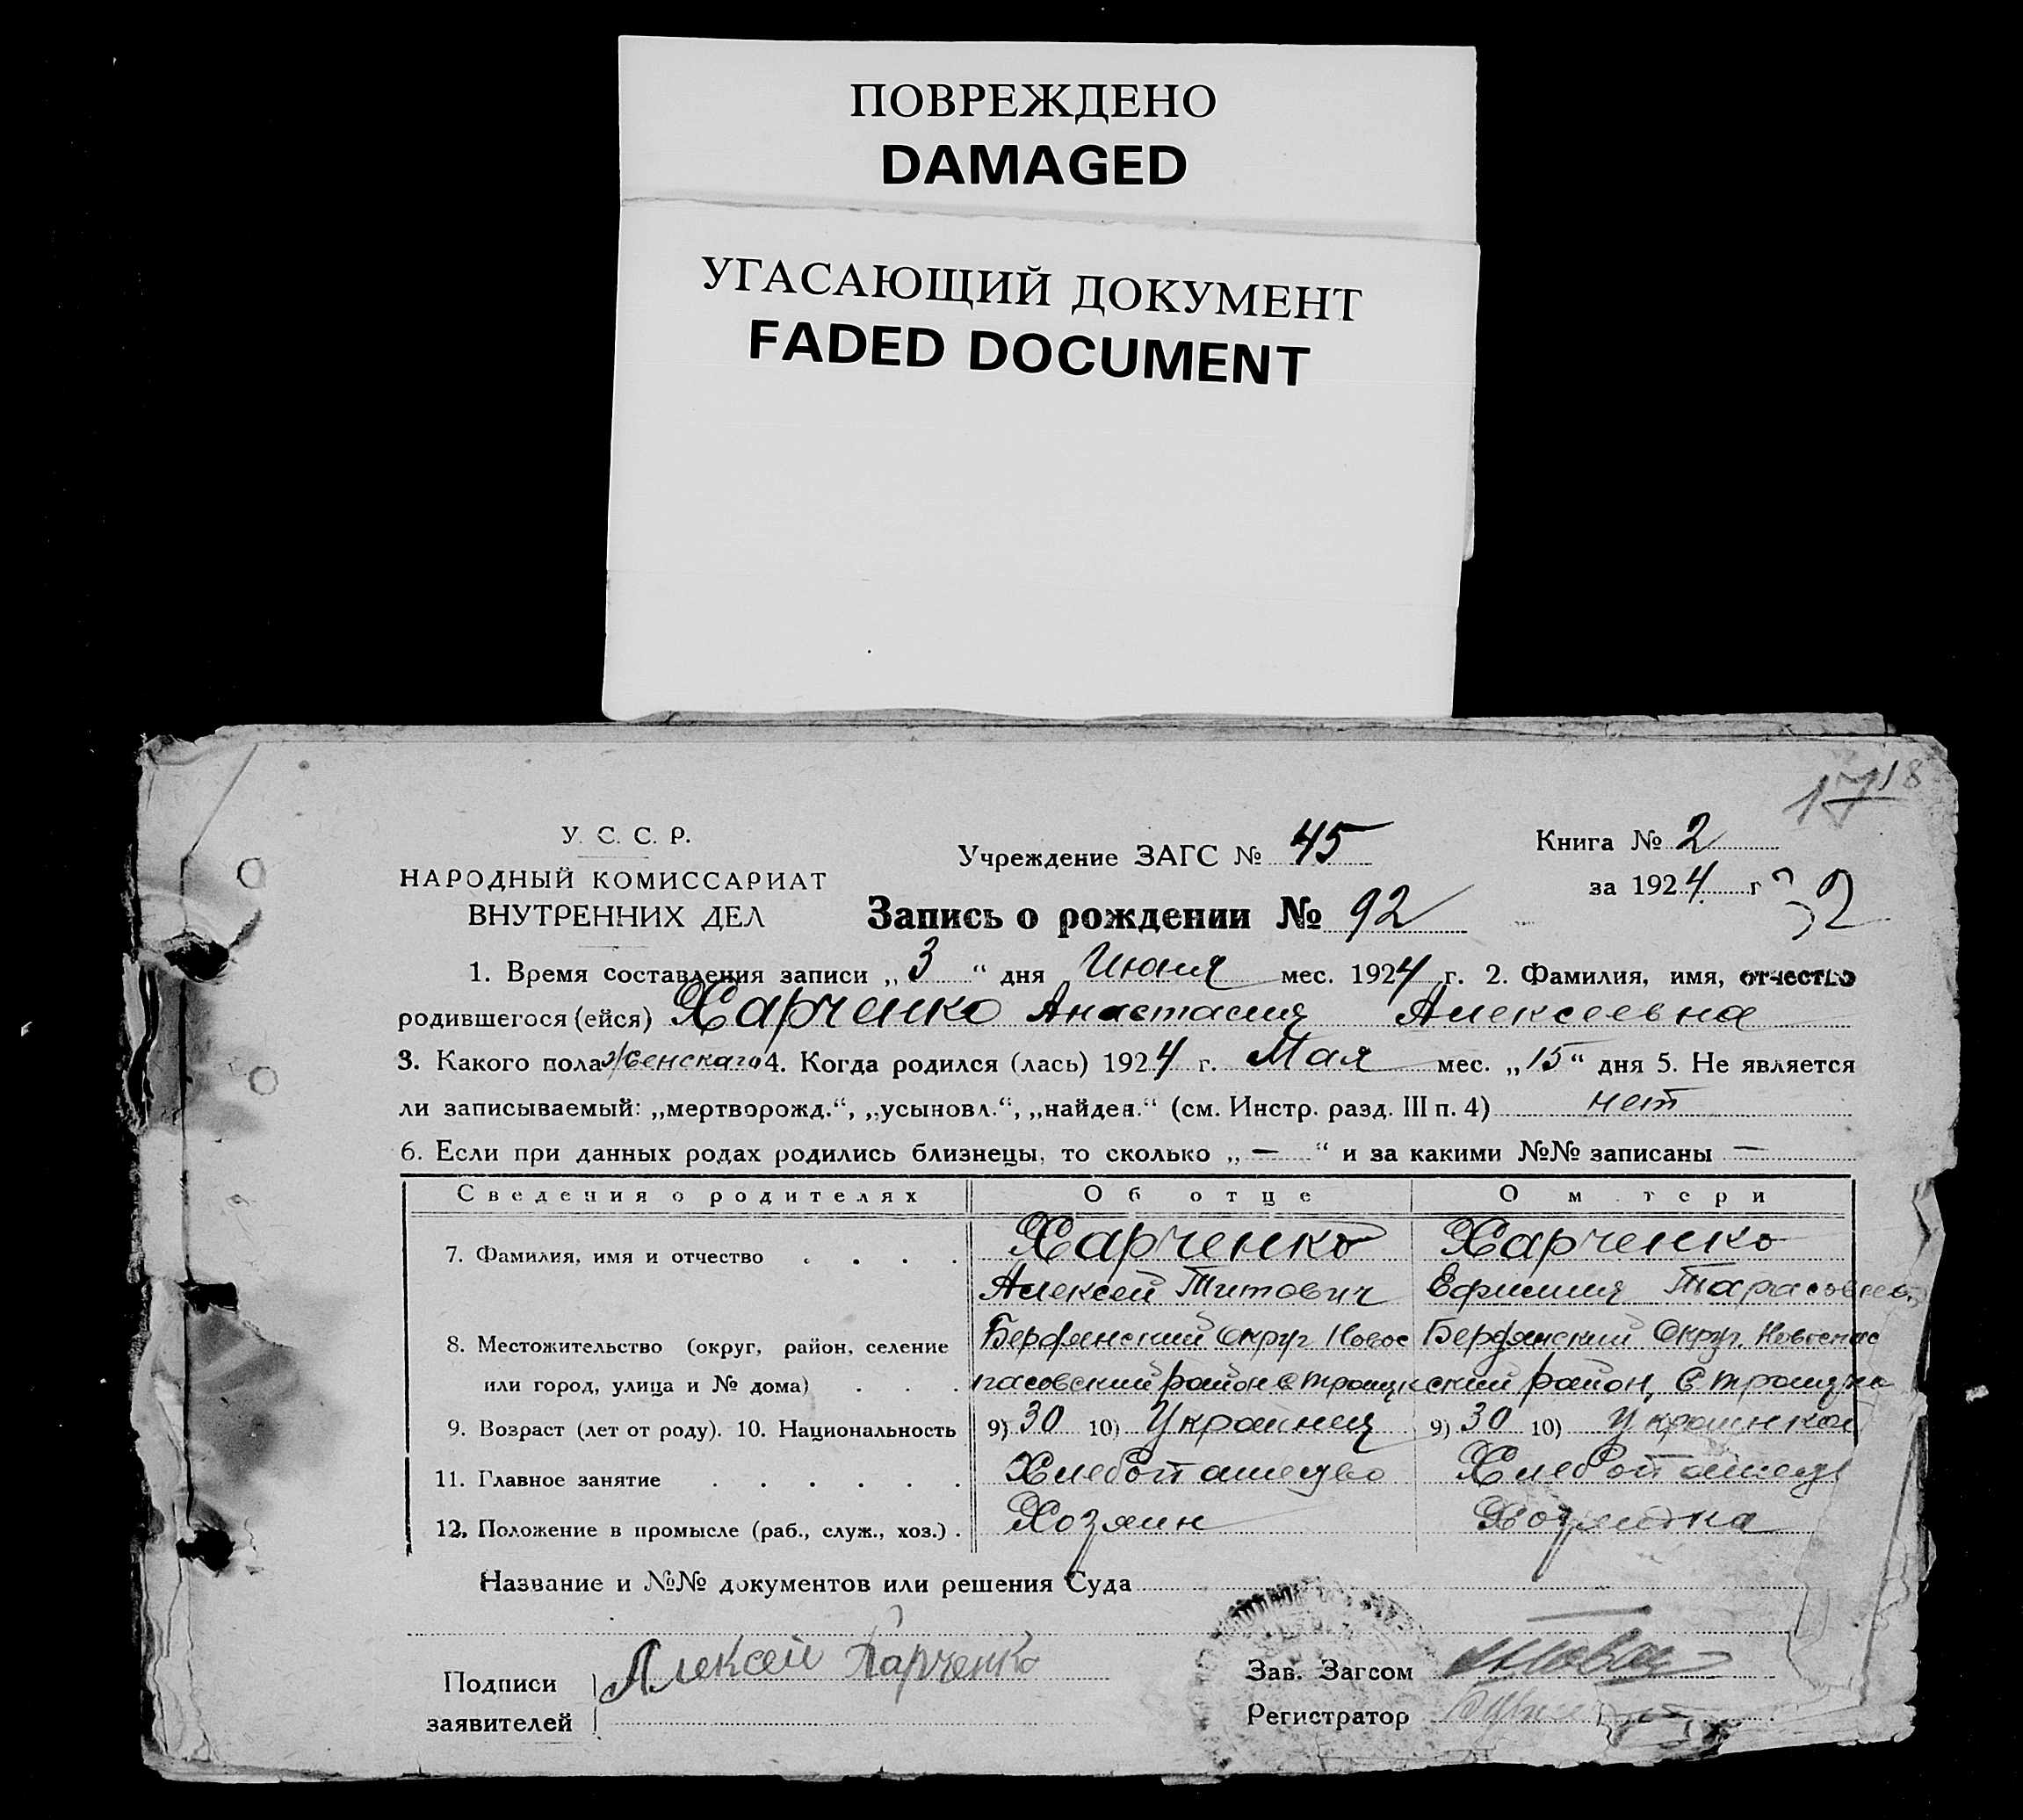 ПОВРЕЖДЕНО
DAMAGED
УГАСАЮЩИЙ ДОКУМЕНТ
FADED DOCUMENT
17 18
У. С. С. Р.
НАРОДНЫЙ КОМИССАРИАТ
ВНУТРЕННИХ ДЕЛ
Учреждение ЗАГС № 45
Книга № 2
за 1924 г
92
Запись о рождении № 92
1. Время составления записи „3“ дня Июня мес. 1924 г. 2. Фамилия, имя, отчество
родившегося (ейся) Харченко Анастасия Алексеевна
3. Какого пола женскаго 4. Когда родился (лась) 1924 г. Мая мес. „15“ дня 5. Не является
ли записываемый: „мертворожд.“, „усыновл.“, „найден.“ (см. Инстр. разд. III п. 4) нет
6. Если при данных родах родились близнецы, то сколько „—“ и за какими №№ записаны —
Сведения о родителях Об отце О м тери
7. Фамилия, имя и отчество . . . . Харченко Харченко
Алексей Титович Ефимия Тарасовна
8. Местожительство (округ, район, селение Бердянский Округ Новос Бердянский Округ. Новоспас
или город, улица и № дома) . . . пасовский район с Троицк ский район, с Троицка
9. Возраст (лет от роду). 10. Национальность 9) 30 10) Украинец 9) 30 10) Украинка
11. Главное занятие . . . . . . Хлебопашество Хлебопашец
12. Положение в промысле (раб., служ., хоз.) . Хозяин Хозяйка
Название и №№ документов или решения Суда
Подписи
заявителей
Алексей Харченко
Зав. Загсом
Регистратор